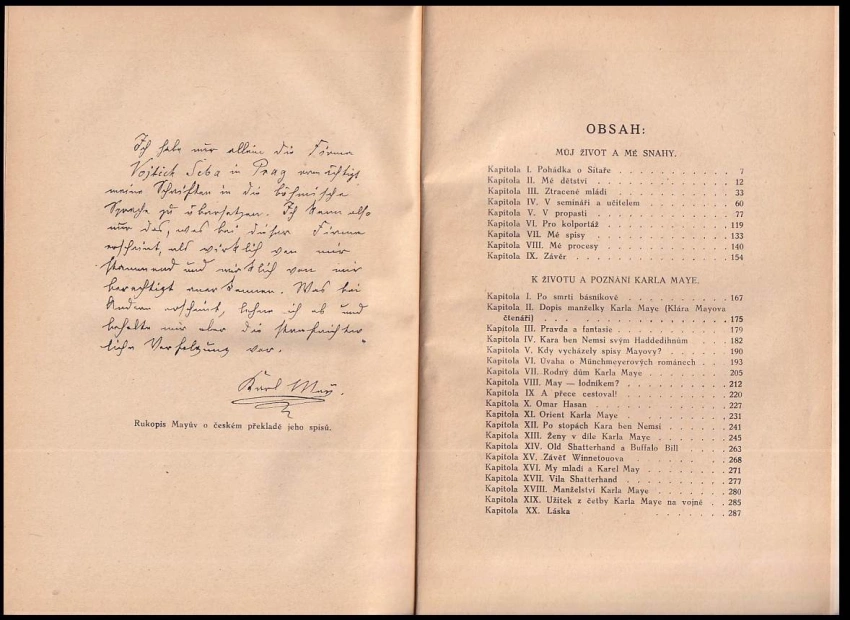 Ich habe nur allein die Firma
Vojtěch Šeba in Prag ermächtigt
meine Schriften in die böhmische
Sprache zu übersetzen. Ich kann also
nur das, was bei dieser Firma
erscheint, als wirklich von mir
stammend und wirklich von mir
berechtigt anerkennen. Was bei
Andern erscheint, lehne ich ab und
behalte mir aber die strafrichter-
liche Verfolgung vor.
Karl May.
Rukopis Mayův o českém překladě jeho spisů.
OBSAH:
MŮJ ŽIVOT A MÉ SNAHY.
Kapitola I. Pohádka o Sitaře . . . 7
Kapitola II. Mé dětství . . . 12
Kapitola III. Ztracené mládí . . . 33
Kapitola IV. V semináři a učitelem . . . 60
Kapitola V. V propasti . . . 77
Kapitola VI. Pro kolportáž . . . 119
Kapitola VII. Mé spisy . . . 133
Kapitola VIII. Mé procesy . . . 140
Kapitola IX. Závěr . . . 154
K ŽIVOTU A POZNÁNÍ KARLA MAYE.
Kapitola I. Po smrti básníkově . . . 167
Kapitola II. Dopis manželky Karla Maye (Klára Mayova
čtenáři) . . . 175
Kapitola III. Pravda a fantasie . . . 179
Kapitola IV. Kara ben Nemsi svým Haddedihnům . . . 182
Kapitola V. Kdy vycházely spisy Mayovy? . . . 190
Kapitola VI. Úvaha o Münchmeyerových románech . . . 193
Kapitola VII. Rodný dům Karla Maye . . . 205
Kapitola VIII. May — lodníkem? . . . 212
Kapitola IX A přece cestoval! . . . 220
Kapitola X. Omar Hasan . . . 227
Kapitola XI. Orient Karla Maye . . . 231
Kapitola XII. Po stopách Kara ben Nemsi . . . 241
Kapitola XIII. Ženy v díle Karla Maye . . . 245
Kapitola XIV. Old Shatterhand a Buffalo Bill . . . 263
Kapitola XV. Závěť Winnetouova . . . 268
Kapitola XVI. My mladí a Karel May . . . 271
Kapitola XVII. Vila Shatterhand . . . 277
Kapitola XVIII. Manželství Karla Maye . . . 280
Kapitola XIX. Užitek z četby Karla Maye na vojně . . 285
Kapitola XX. Láska . . . 287